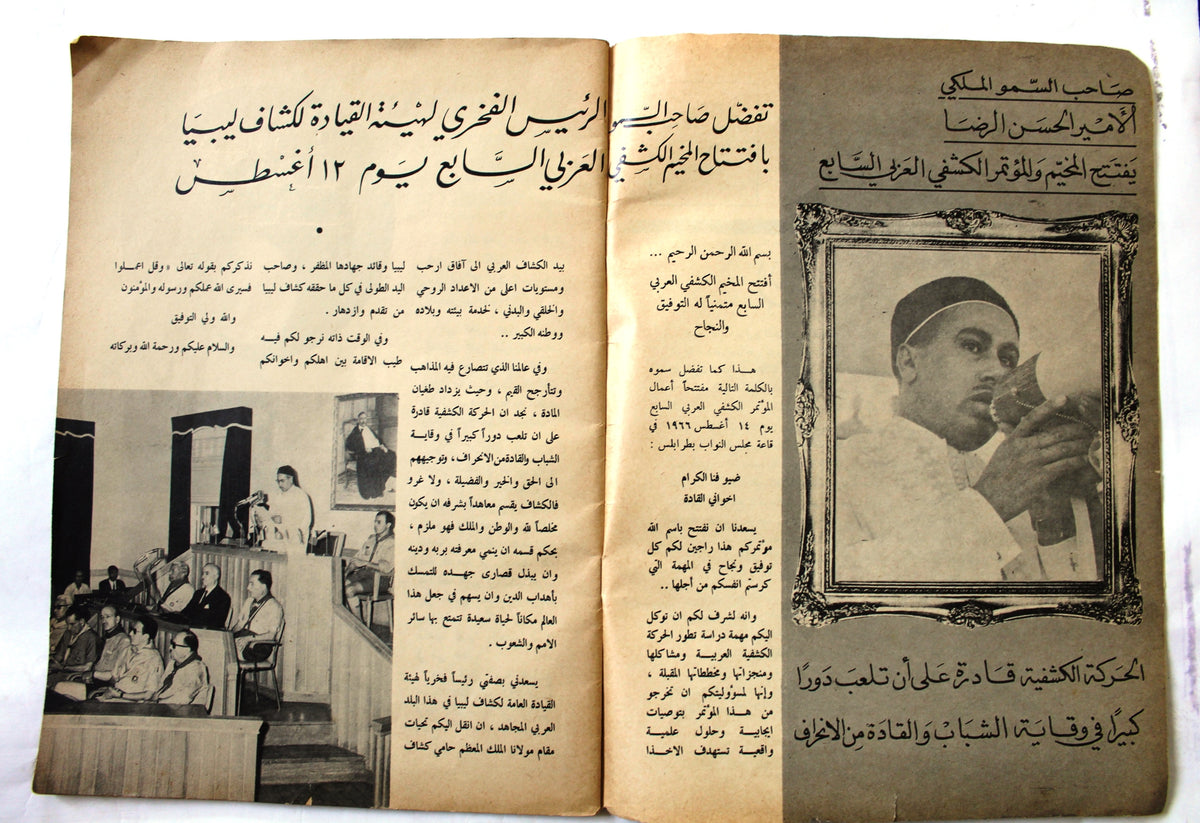 صاحب السمو الملكي
الأمير الحسن الرضا
يفتتح المخيم والمؤتمر الكشفي العربي السابع
الحركة الكشفية قادرة على أن تلعب دورًا
كبيرًا في وقاية الشباب والقادة من الانحراف
تفضّل صاحب السّمو الرئيس الفخري لهيئة القيادة لكشاف ليبيا
بافتتاح المخيم الكشفي العربي السّابع يوم ١٢ أغسطس
بسم الله الرحمن الرحيم ...
أفتتح المخيم الكشفي العربي
السابع متمنياً له التوفيق
والنجاح
هذا كما تفضل سموه
بالكلمة التالية مفتتحاً أعمال
المؤتمر الكشفي العربي السابع
يوم ١٤ أغسطس ١٩٦٦ في
قاعة مجلس النواب بطرابلس :
ضيوفنا الكرام
اخواني القادة
يسعدنا ان نفتتح باسم الله
مؤتمركم هذا راجين لكم كل
توفيق ونجاح في المهمة التي
كرستم انفسكم من أجلها ..
وانه لشرف لكم ان توكل
اليكم مهمة دراسة تطور الحركة
الكشفية العربية ومشاكلها
ومنجزاتها ومخططاتها المقبلة ،
وإنها لمسؤوليتكم ان تخرجو
من هذا المؤتمر بتوصيات
ايجابية وحلول علمية
واقعية تستهدف الاخذا
بيد الكشاف العربي الى آفاق ارحب
ومستويات اعلى من الاعداد الروحي
والخلقي والبدني ، لخدمة بيئته وبلاده
ووطنه الكبير ..
وفي عالمنا الذي تتصارع فيه المذاهب
وتتأرجح القيم ، وحيث يزداد طغيان
المادة ، نجد ان الحركة الكشفية قادرة
على ان تلعب دوراً كبيراً في وقاية
الشباب والقادة من الانحراف ، وتوجيههم
الى الحق والخير والفضيلة ، ولا غرو
فالكشاف يقسم معاهداً بشرفه ان يكون
مخلصاً لله والوطن والملك فهو ملزم ،
بحكم قسمه ان ينمي معرفته بربه ودينه
وان يبذل قصارى جهده للتمسك
بأهداب الدين وان يسهم في جعل هذا
العالم مكاناً لحياة سعيدة تتمتع بها سائر
الامم والشعوب .
يسعدني بصفتي رئيساً فخرياً لهيئة
القيادة العامة لكشاف ليبيا في هذا البلد
العربي المجاهد ، ان انقل اليكم تحيات
مقام مولانا الملك المعظم حامي كشاف
ليبيا وقائد جهادها المظفر ، وصاحب
اليد الطولى في كل ما حققه كشاف ليبيا
من تقدم وازدهار .
وفي الوقت ذاته نرجو لكم فيه
طيب الاقامة بين اهلكم واخوانكم
نذكركم بقوله تعالى « وقل اعملوا
فسيرى الله عملكم ورسوله والمؤمنون
والله ولي التوفيق
والسلام عليكم ورحمة الله وبركاته